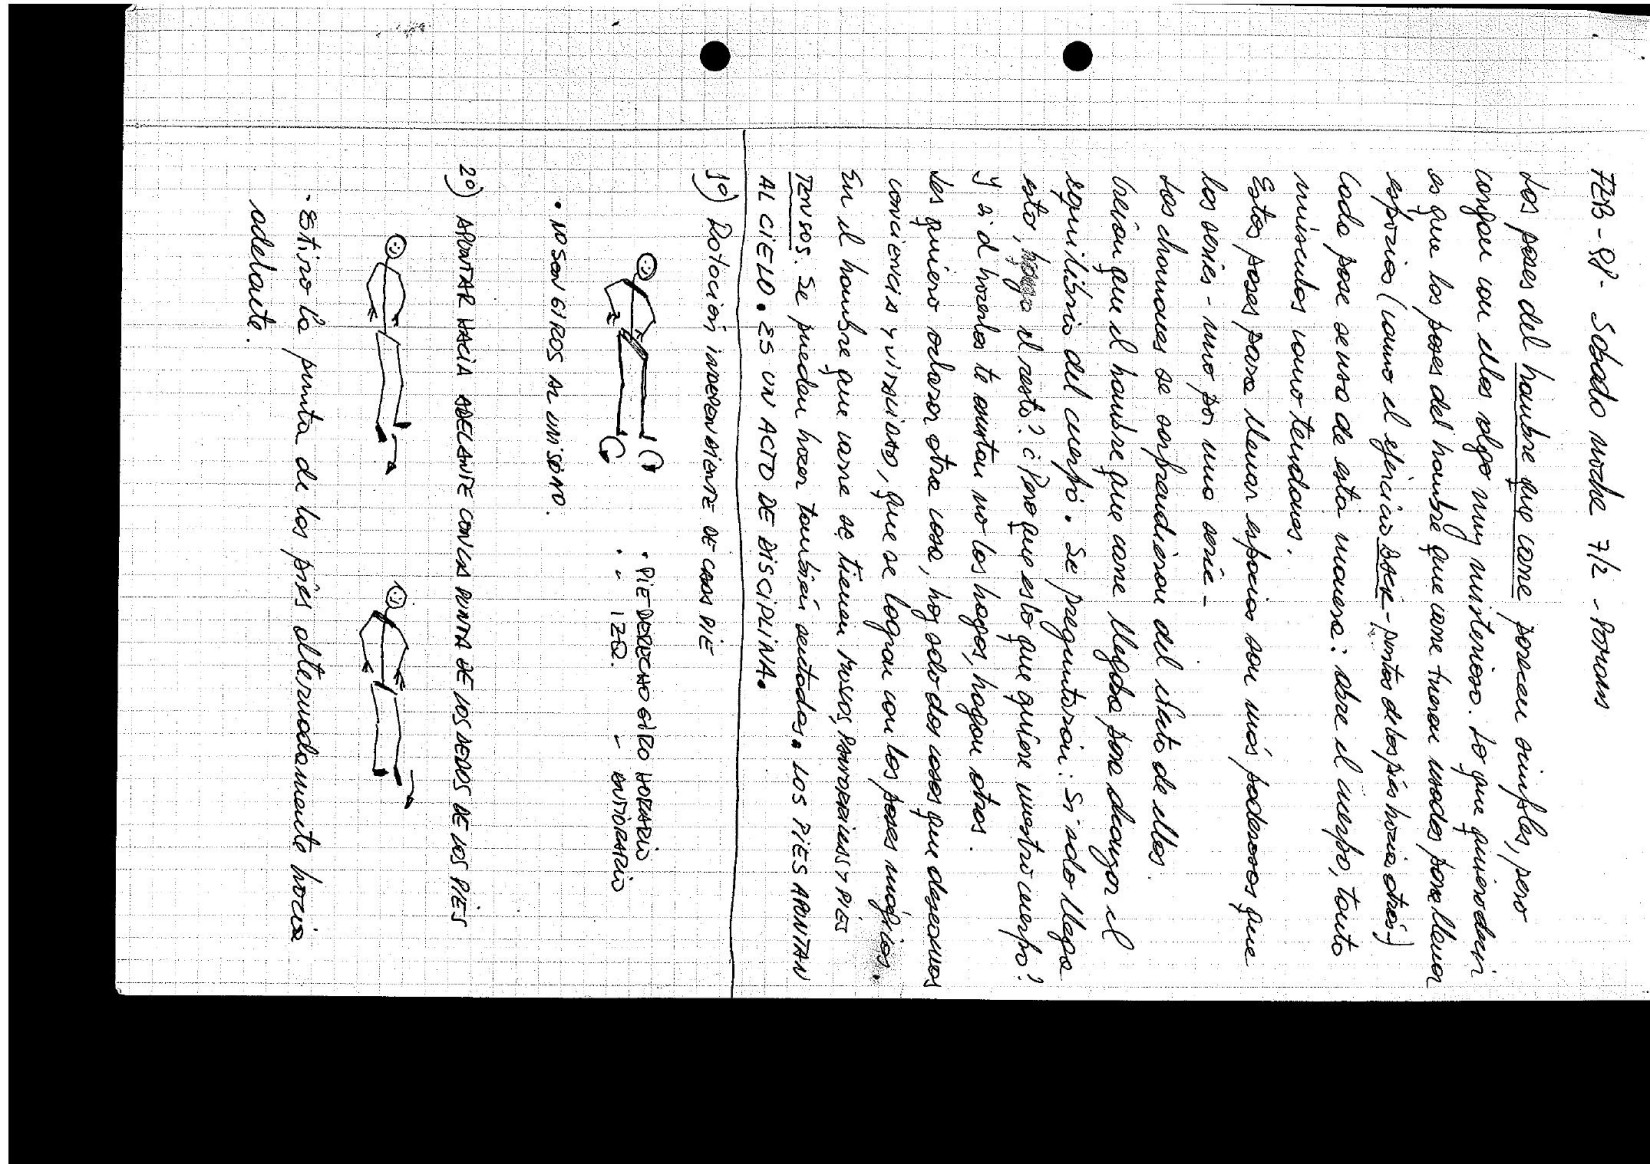 FEB-98- Sábado noche 7/2 - Porous
Los pases del hombre que corre parecen simples, pero
cargan con ellos algo muy misterioso. Lo que quiero decir
es que los pases del hombre que corre fueron usados para llenar
espacios (como el ejercicio - puntas de los piés hacia atrás-)
Cada pase se usa de esta manera: abre el cuerpo, tanto
músculos como tendones.
Estos pases para llenar espacios son más poderosos que
las series - uno por uno serie -
Los chamanes se sorprendieron del efecto de ellos.
Creían que el hombre que corre llegaba para alcanzar el
equilibrio del cuerpo. Se preguntarán: Si solo llega
esto, hago el resto? ¿Pero que es lo que quiere nuestro cuerpo?
Y si al hacerlos te asustan no los hagas, hagan otros.
Les quiero aclarar otra cosa, hay solo dos cosas que deseamos
conciencia y virtuosismo, que se logran con los pases mágicos.
En el hombre que corre se tienen muslos, pantorrillas y pies
TENSOS. Se pueden hacer también sentados. LOS PIES APUNTAN
AL CIELO. ES UN ACTO DE DISCIPLINA.
1º) Rotación INDEPENDIENTE DE CADA PIE
• PIE DERECHO GIRO HORARIO
• " IZQ. " ANTIORARIO
• NO SON GIROS AL UNISONO.
2º) APUNTAR HACIA ADELANTE CON LA PUNTA DE LOS DEDOS DE LOS PIES
• Estiro la punta de los piés alternadamente hacia
adelante.